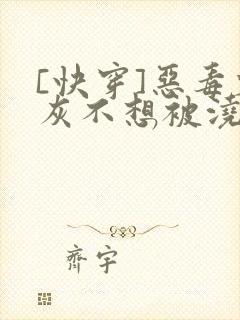 [快穿]惡毒
灰不想被澆
齊宇